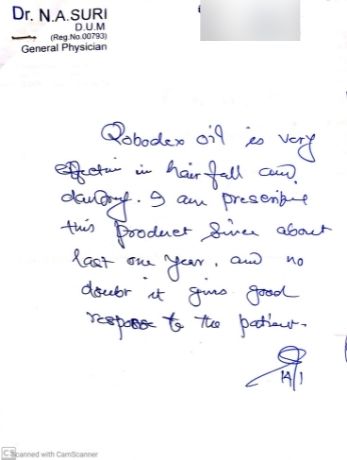 Dr. N.A.SURI
D.U.M
(Reg.No.00793)
General Physician
Robodex oil is very
effective in hair fall and
dandruff. I am prescribing
this product since about
last one year. and no
doubt it gives good
response to the patient.
14/1
CS Scanned with CamScanner